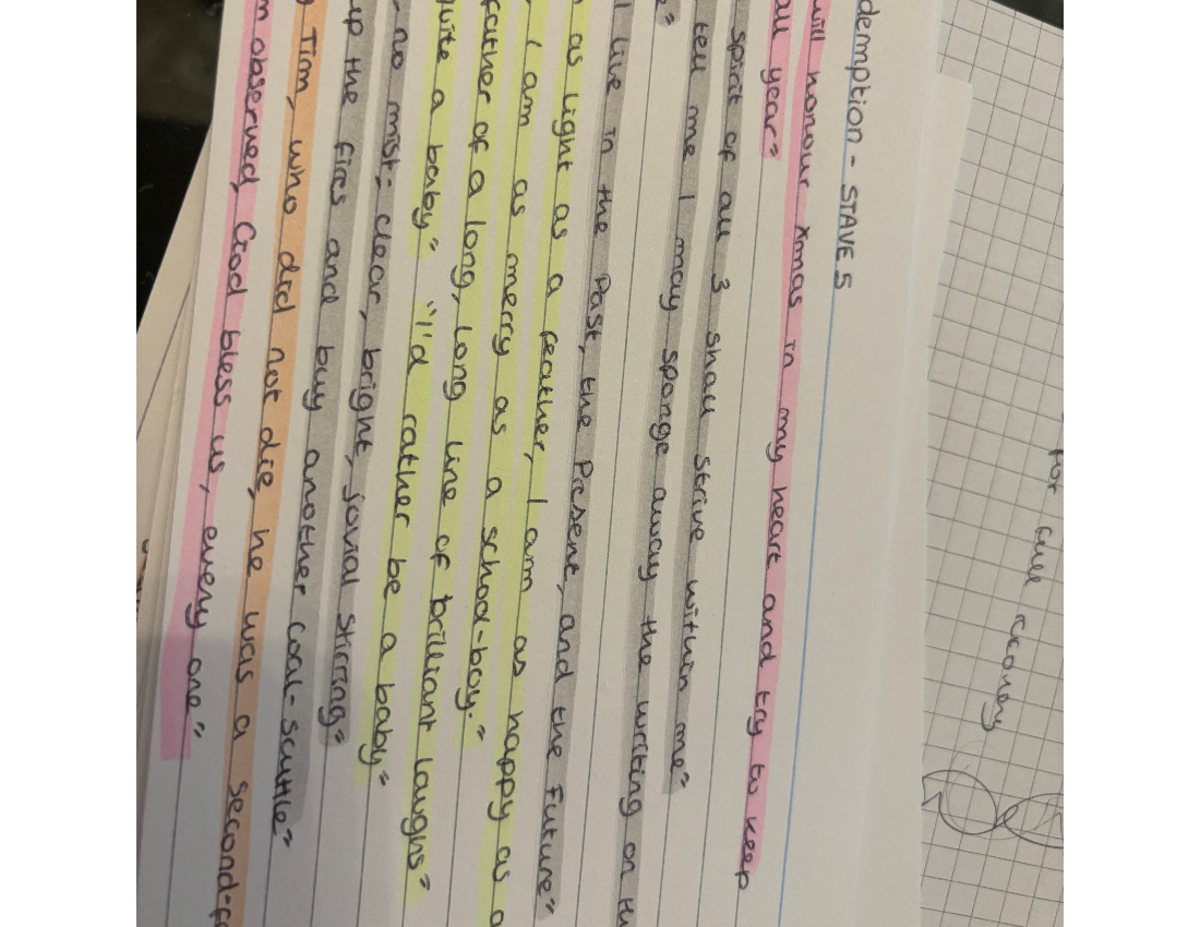 demption - STAVE 5
will honour xmas in my heart and try to keep
all year"
spirit of all 3 shall strive within me"
tell me I may sponge away the writing on th
e"
I live in the Past, the Present, and the Future"
as light as a feather, I am as happy as a
I am as merry as a school-boy."
father of a long, long line of brilliant laughs"
quite a baby" "I'd rather be a baby"
- no mist; clear, bright, jovial stirring"
up the fires and buy another coal-scuttle"
Tim, who did not die, he was a second-f
m observed, God bless us, every one"
for
full economy